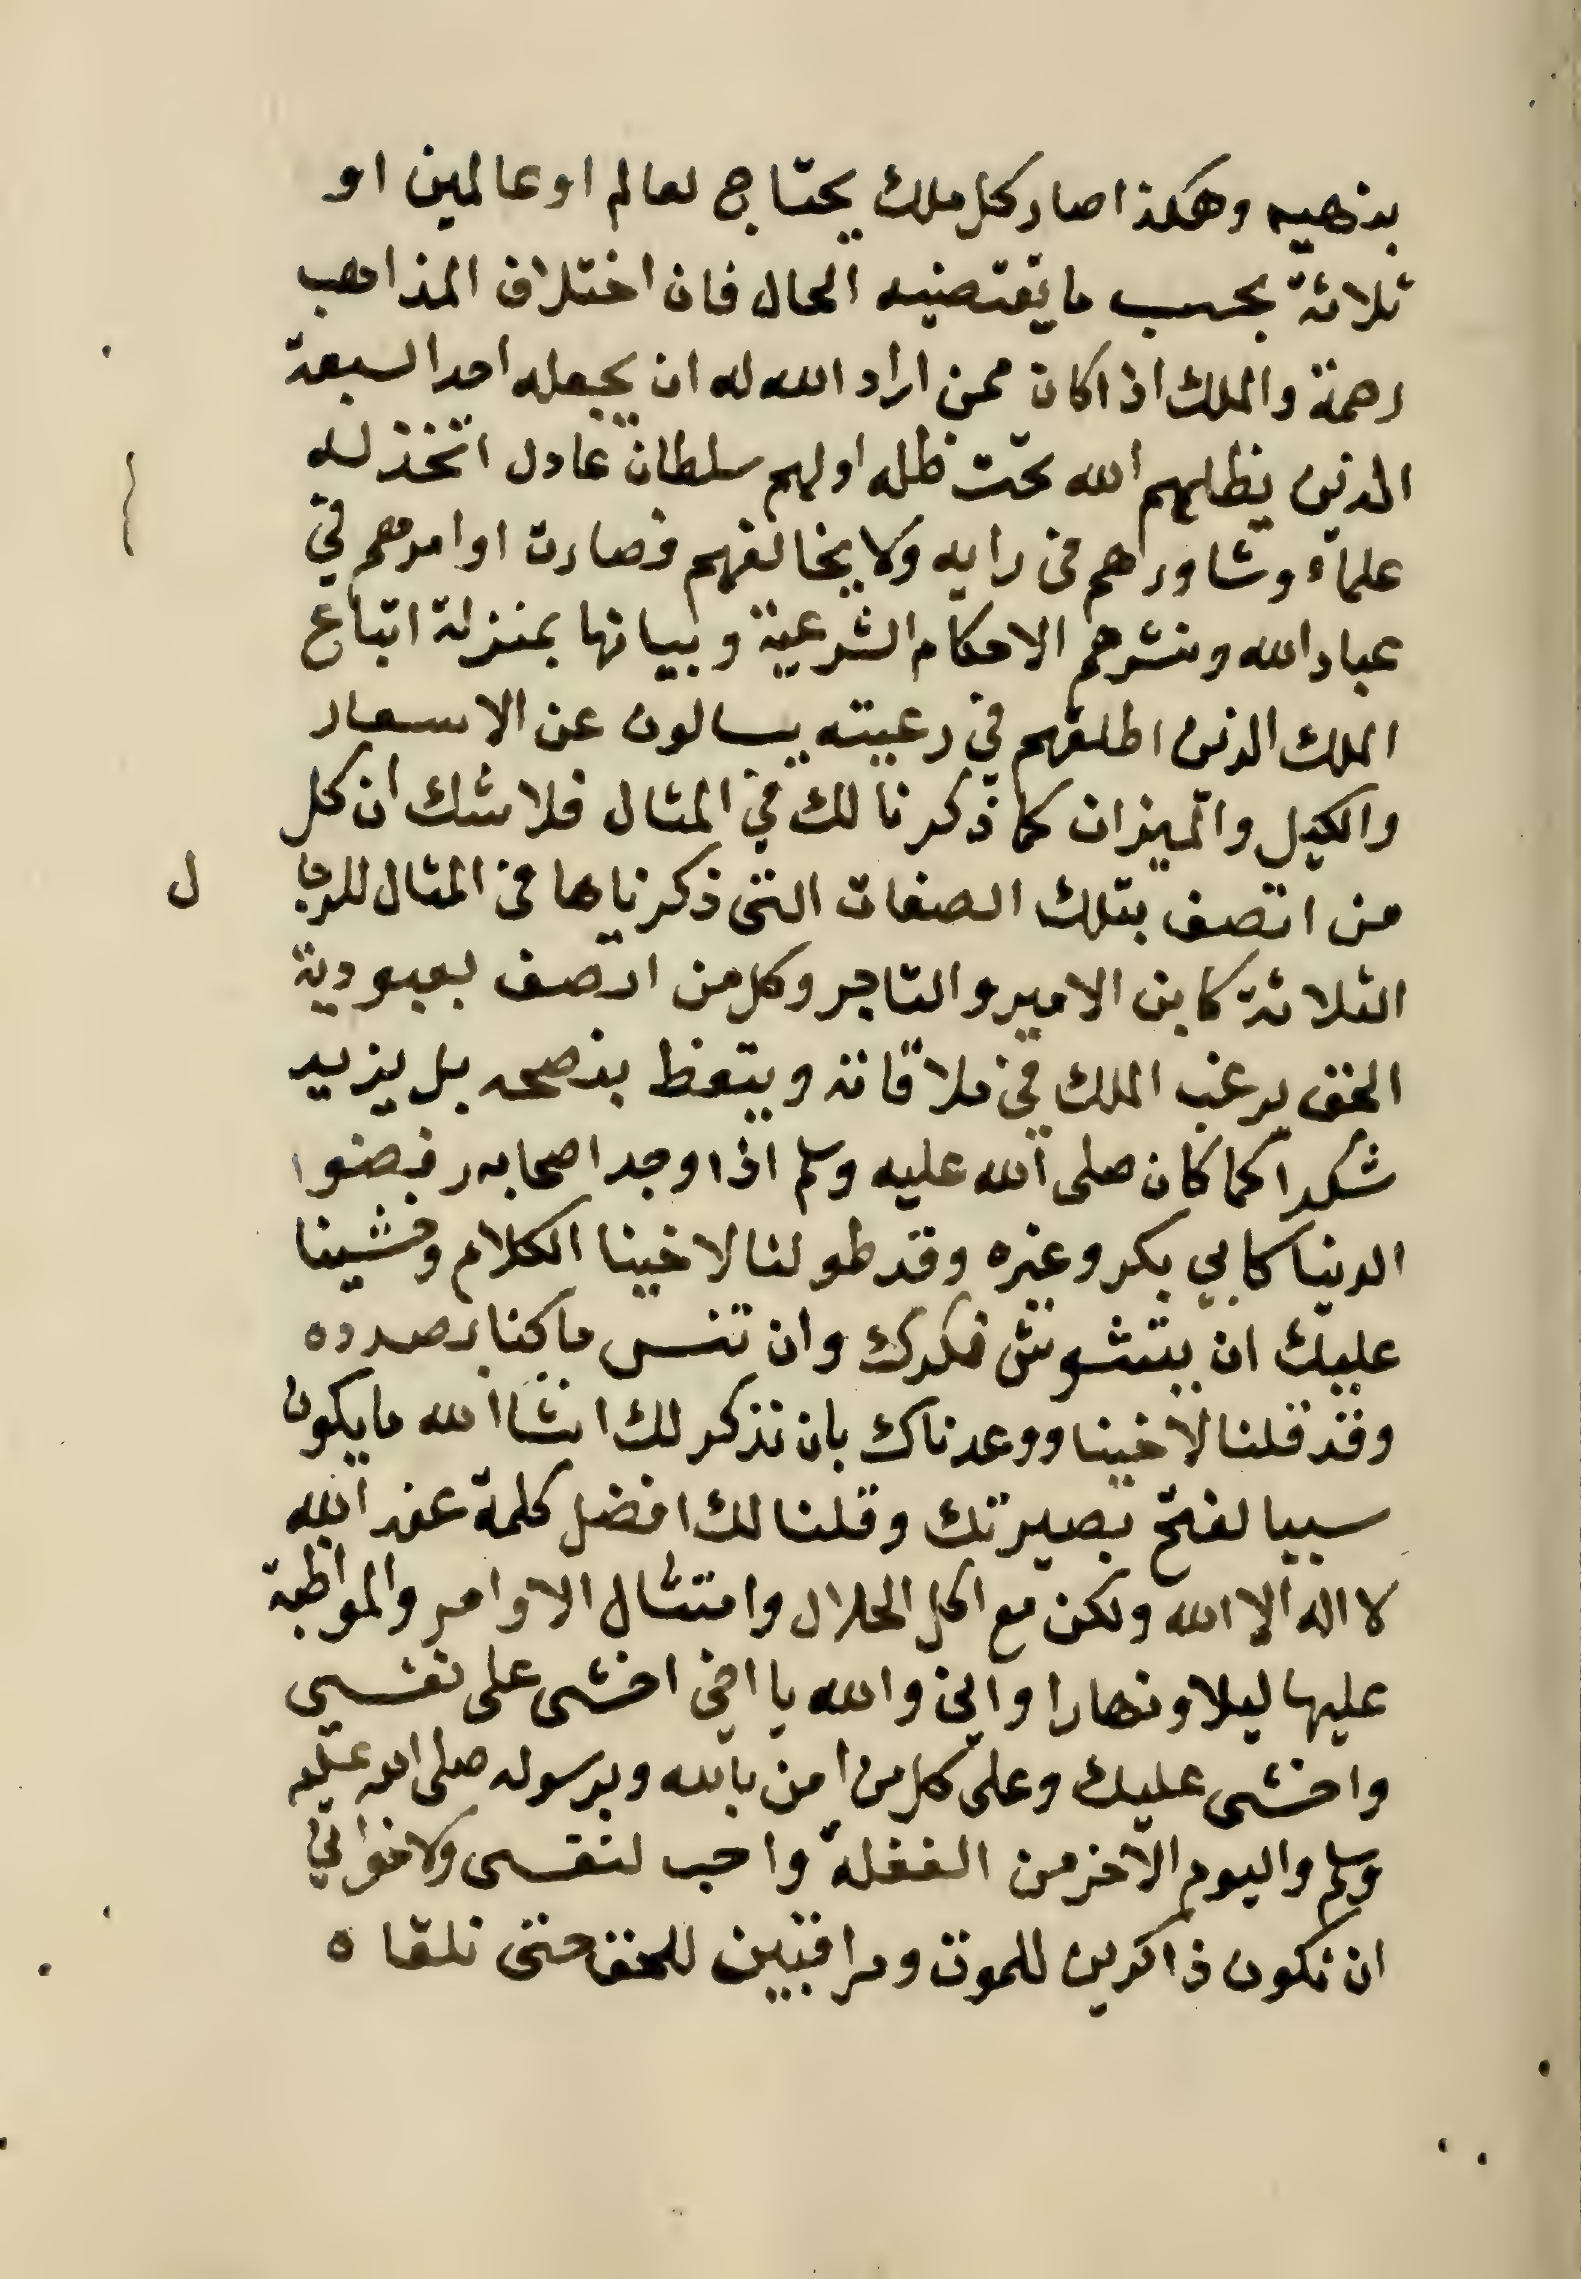 بذهبه وهكذا صار كل ملك يحتاج لعالم او عالمين او
ثلاثة بحسب ما يقتضيه الحال فان اختلاف المذاهب
رحمة والملك اذا كان ممن اراد الله له ان يجعله احد السبعة
الذين يظلهم الله تحت ظله اولهم سلطان عادل اتخذ له
علماء وشاورهم في رايه ولا يخالفهم فصارت اوامرهم في
عباد الله ونشرهم الاحكام الشرعية وبيانها بمنزلة اتباع
الملك الذين اطلقهم في رعيته يسالون عن الاسعار
والكيل والميزان كما ذكرنا لك في المثال فلا شك ان كل
من اتصف بتلك الصفات التي ذكرناها في المثال للرجا ل
الثلاثة كابن الامير والتاجر وكل من اتصف بعبودية
الحق يرغب الملك في ملاقاته ويتعظ بنصحه بل يزيد
شكرا كما كان صلى الله عليه وسلم اذا وجد اصحابه رفضوا
الدنيا كابي بكر وغيره وقد طولنا لاخينا الكلام وخشينا
عليك ان يتشوش فكرك وان تنس ما كنا بصدده
وقد قلنا لاخينا ووعدناك بان نذكر لك انشا الله ما يكون
سببا لفتح بصيرتك وقلنا لك افضل كلمة عند الله
لا اله الا الله ولكن مع اكل الحلال وامتثال الاوامر والمواظبة
عليها ليلا ونهارا واني والله يا اخي اخشى على نفسي
واخشى عليك وعلى كل من امن بالله وبرسوله صلى الله عليه
وسلم واليوم الاخر من الغفلة واحب لنفسي ولاخواني
ان نكون ذاكرين للموت ومراقبين للحق حتى نلقاه